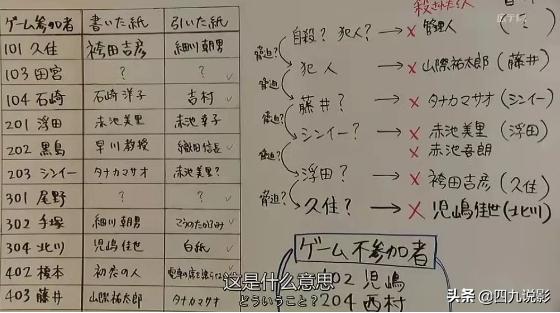 ゲーム参加者 書いた紙 引いた紙
101 久住 袴田吉彦 細川朝男
103 田宮 ? ?
104 石崎 石崎洋子 吉村
201 浮田 赤池美里 赤池幸子
202 黒島 早川教授 織田信長
203 シンイー タナカマサオ 赤池美里?
301 尾野 ? ?
302 手塚 細川朝男
304 北川 児嶋佳世 白紙
402 榎本
403 藤井 山際祐太郎 タナカマサオ
自殺? 犯人? → × 管理人
脅迫?
犯人 → × 山際祐太郎 (藤井)
脅迫?
藤井? → × タナカマサオ (シンイー)
脅迫?
シンイー? → × 赤池美里 (浮田)
× 赤池吾朗
脅迫?
浮田? → × 袴田吉彦 (久住)
脅迫?
久住? → × 児嶋佳世 (北川)
ゲーム不参加者
児嶋
204 西村
这是什么意思
どういうこと?
头条 @四九说影